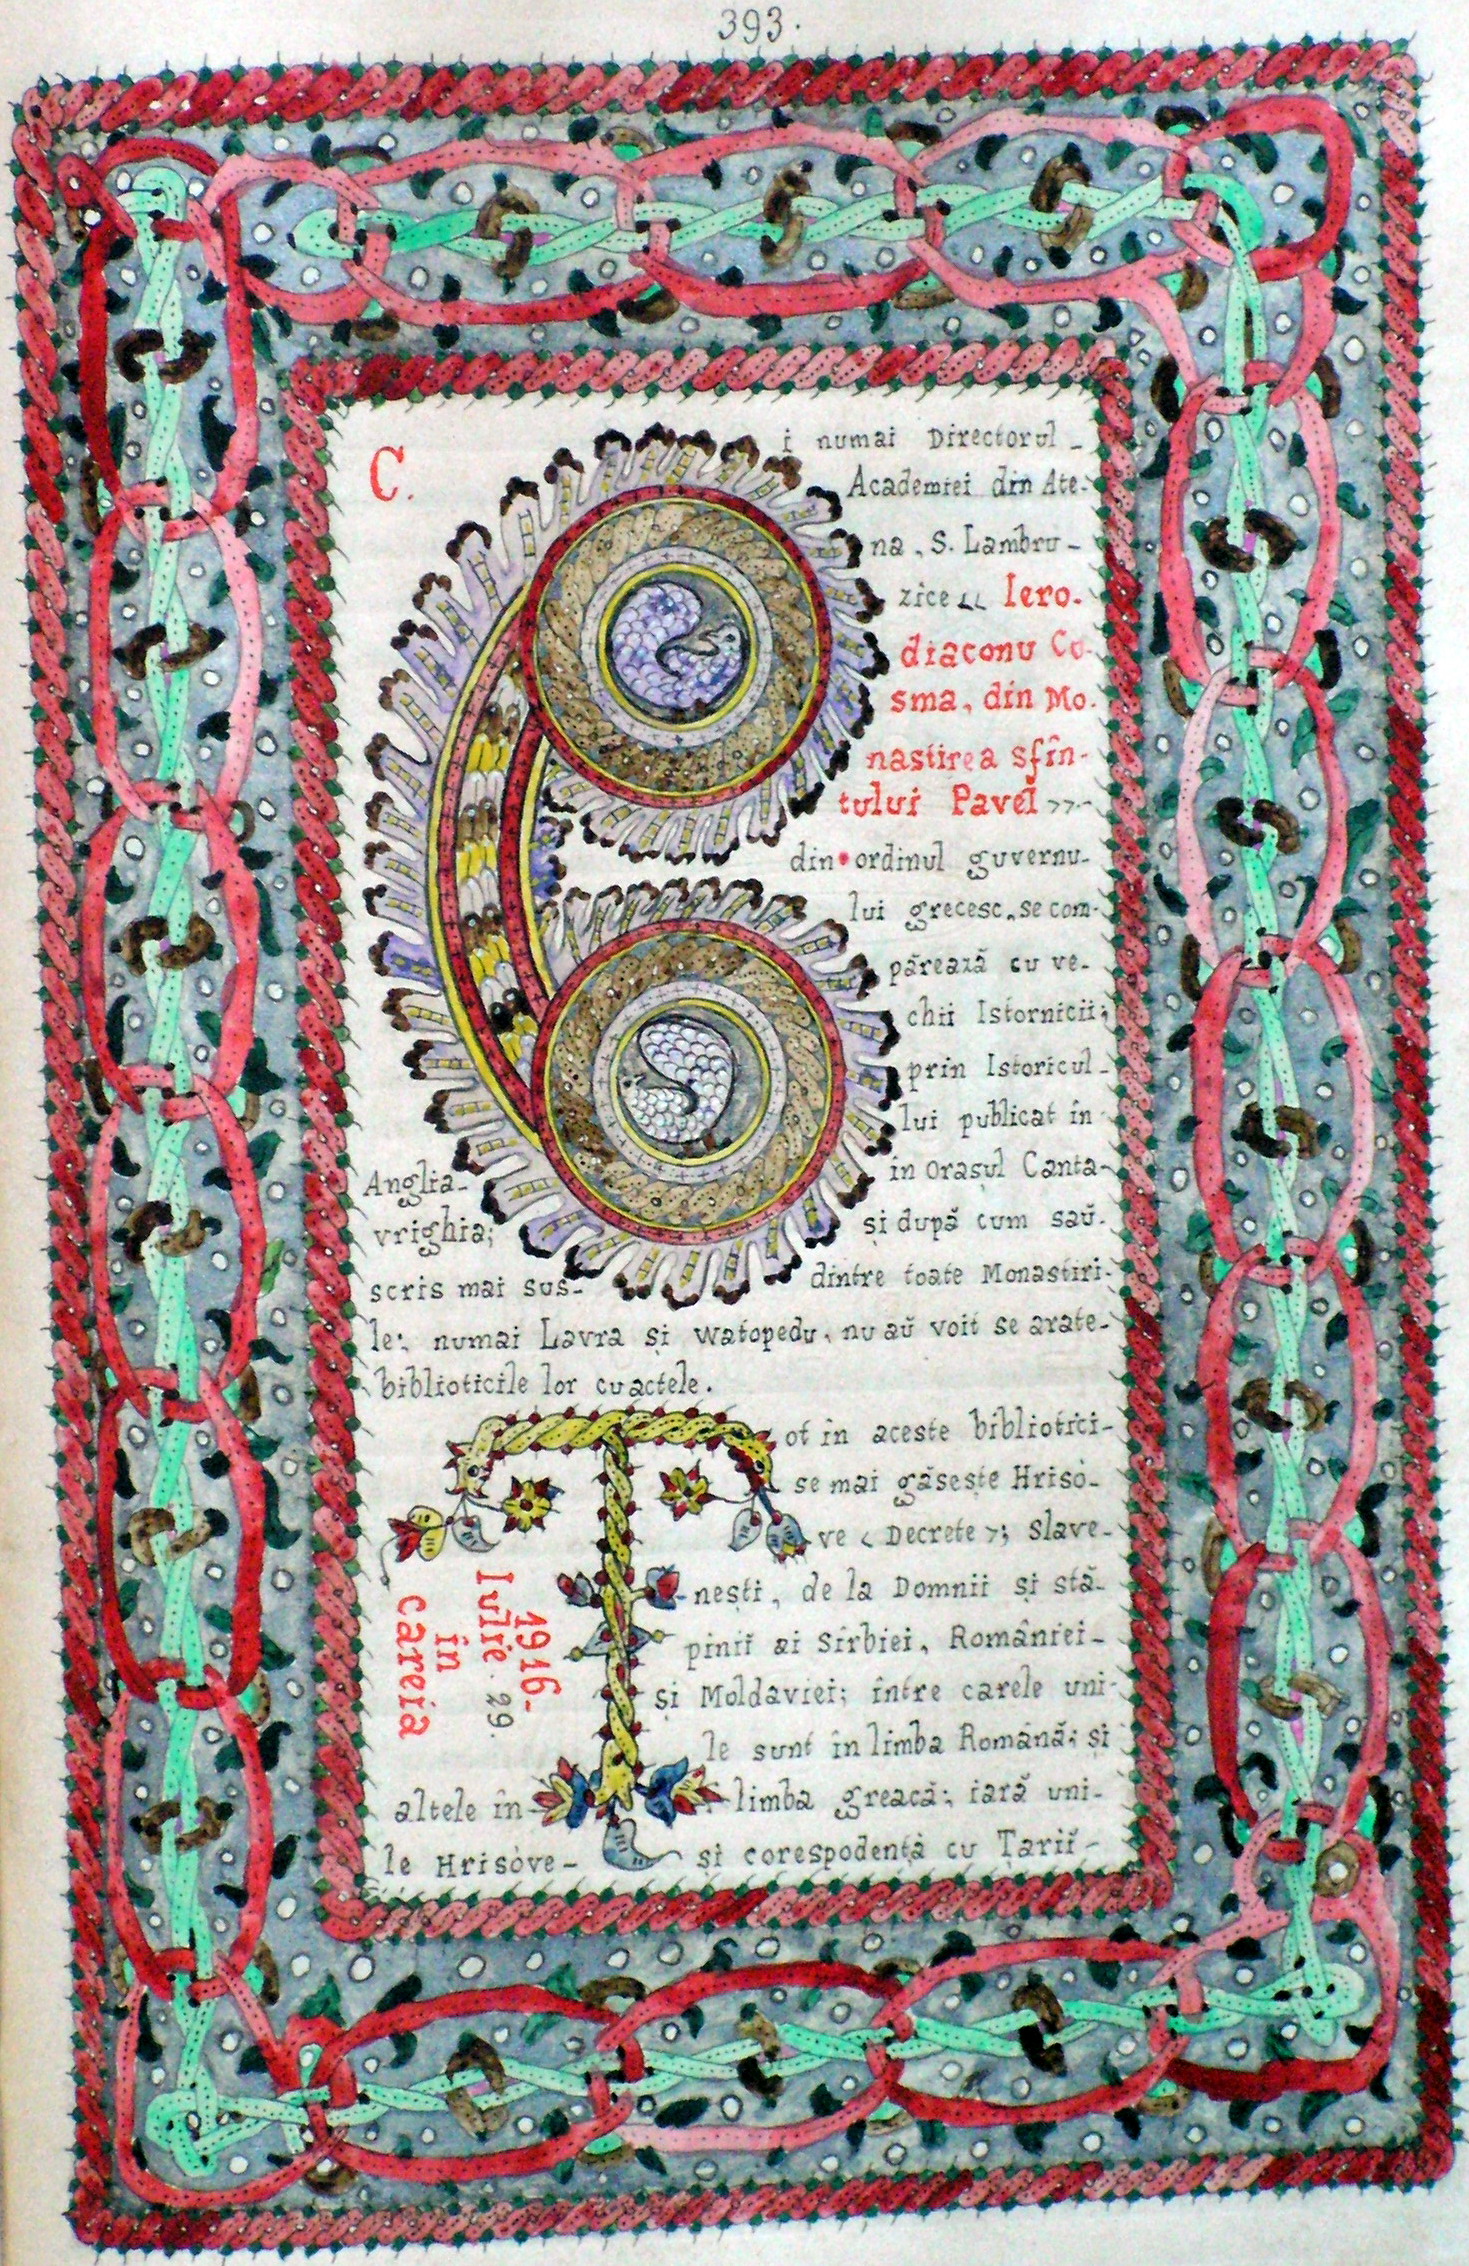 393.
C.
i numai Directorul-
Academiei din Ate-
na, S. Lambru-
zice « Iero-
diaconu Co-
sma, din Mo-
nastirea sfîn-
tului Pavel »-
din ordinul guvernu-
lui grecesc, se com-
părează cu ve-
chii Istornicii;
prin Istoricul-
lui publicat în
Anglia- în orașul Canta-
vrighia; și după cum saŭ-
scris mai sus- dintre toate Monastiri-
le; numai Lavra și Watopedu, nu aŭ voit se arate-
biblioticile lor cu actele.
T
ot în aceste bibliotici-
se mai găsește Hrisò-
ve < Decrete >; slave-
nești, de la Domnii și stă-
piniĭ ai Sîrbiei, României-
și Moldaviei; între carele uni-
le sunt în limba Română; și
altele în- limba greacă; iară uni-
le Hrisòve- și corespodență cu Țariĭ-
1916-
Iulie. 29.
în
careia